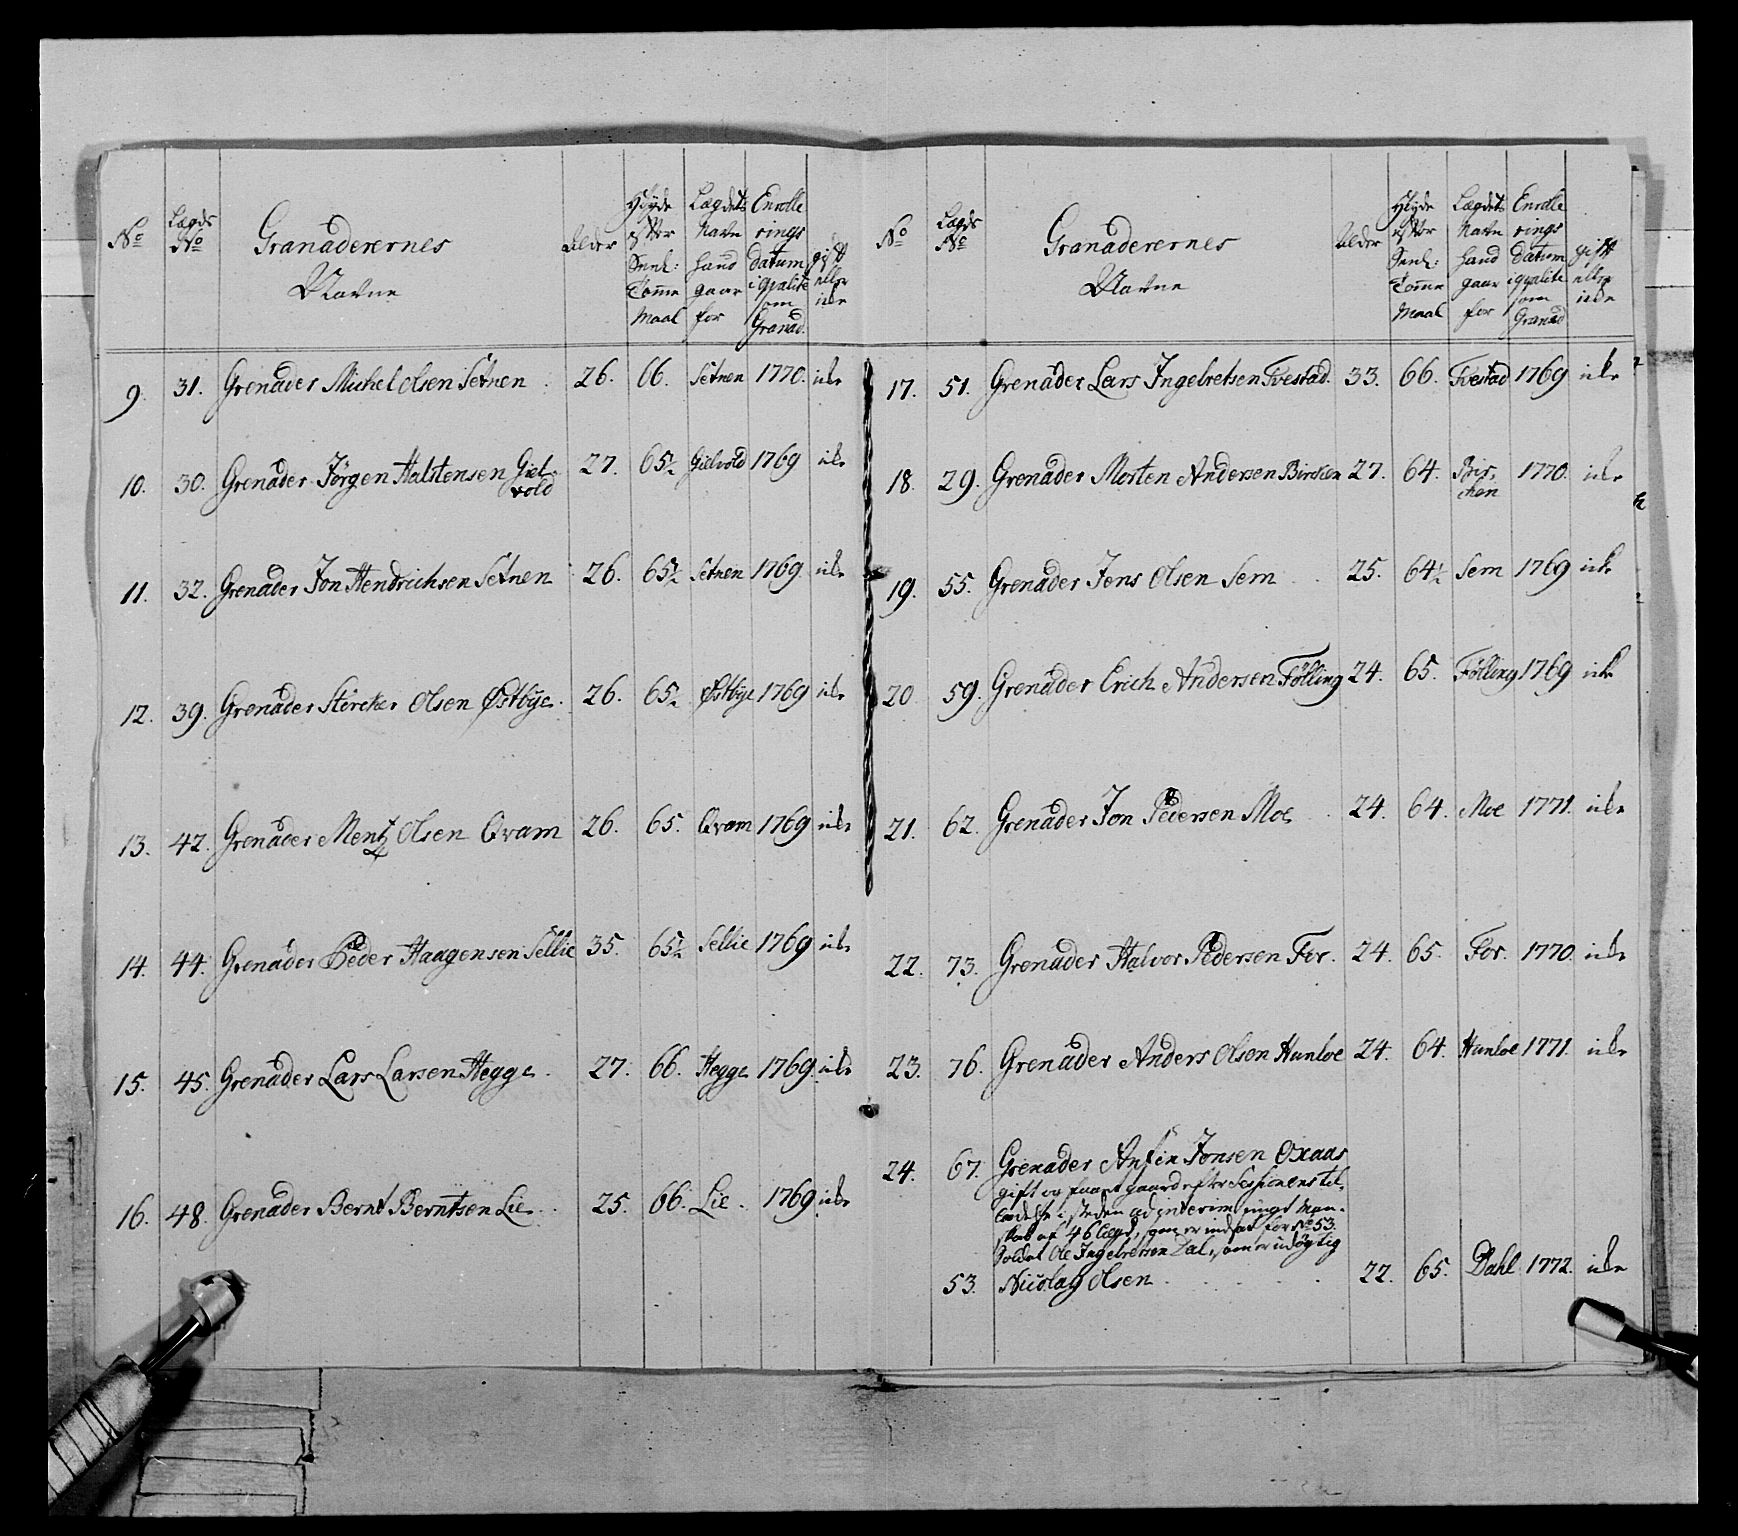 No
Lægds No
Granaderernes Navne
Alder
Høyde efter Senl: Tomme Maal
Lægdets Navn hand gaar for
Enrolle rings datum i qvalite som Granad.
gift eller icke
9. 31. Grenader Michel Olsen Setnen 26. 66. Setnen 1770. icke
10. 30. Grenader Jörgen Halstensen Gielvold 27. 65½ Gielvold 1769 icke
11. 32. Grenader Jon Hendrichsen Setnen 26. 65½ Setnen 1769 icke
12. 39. Grenader Störcker Olsen Østbye 26. 65½ Østbye 1769 icke
13. 42. Grenader Mentz Olsen Qvam 26. 65. Qvam 1769 icke
14. 44. Grenader Peder Haagensen Sellie 35. 65½ Sellie 1769 icke
15. 45. Grenader Lars Larsen Hegge 27. 66. Hegge 1769 icke
16. 48. Grenader Bernt Berntsen Lie 25. 66. Lie 1769 icke
No
Lægds No
Granaderernes Navne
Alder
Høyde efter Senl: Tomme Maal
Lægdets Navn hand gaar for
Enrolle rings datum i qvalite som Granad
gift eller icke
17. 51. Grenader Lars Ingelretsen Tvestad 33. 66. Tvestad 1769 icke
18. 29. Grenader Morten Andersen Birchen 27. 64. Birchen 1770. icke
19. 55. Grenader Jens Olsen Sem 25. 64½ Sem 1769 icke
20 59. Grenader Erich Andersen Fölling 24. 65. Fölling 1769 icke
21. 62. Grenader Jon Pedersen Moe 24. 64. Moe 1771. icke
22. 73. Grenader Halvor Pedersen For. 24. 65. For. 1770. icke
23. 76. Grenader Anders Olsen Hunloe 24. 64. Hunloe 1771. icke
24. 67. Grenader Anfin Jonsen Oxaas
gift og faaet gaard efter Sessionens til-
ladelse i steden ad interim ungt Man-
skab af 46 lægd, som er indsat for No 53.
Soldat Ole Ingelretsen Dal, som er udögtig
53. Nicolay Olsen 22. 65. Dahl 1772. icke